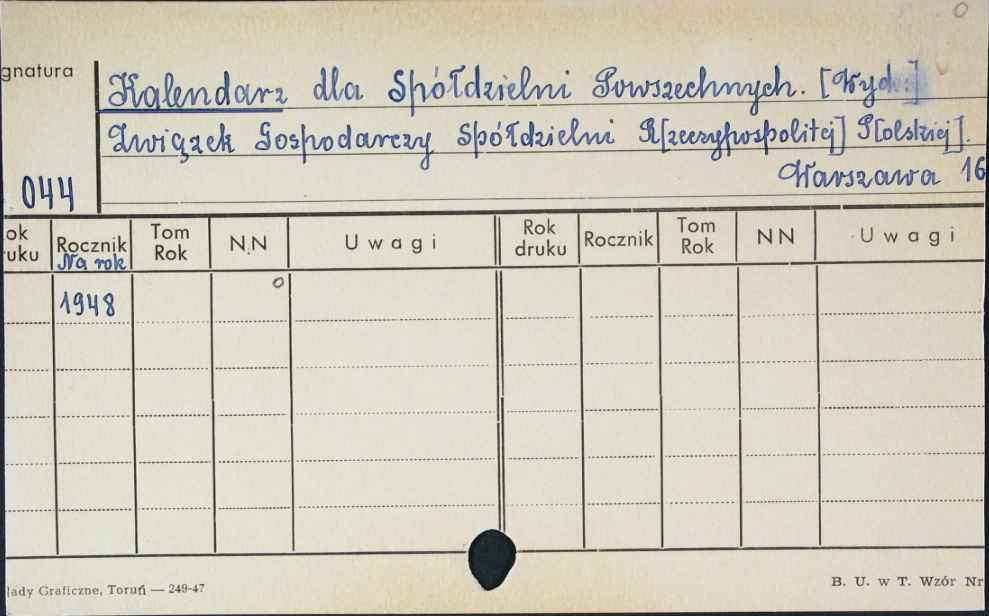 gnatura
Kalendarz dla Spółdzielni Powszechnych. [Wyd.:]
Związek Gospodarczy Spółdzielni R[zeczypospolitej] P[olskiej].
044
Warszawa 16
ok
ruku
Rocznik
Na rok
Tom
Rok
N.N
Uwagi
Rok
druku
Rocznik
Tom
Rok
NN
Uwagi
1948
łady Graficzne, Toruń — 249-47
B. U. w T. Wzór Nr